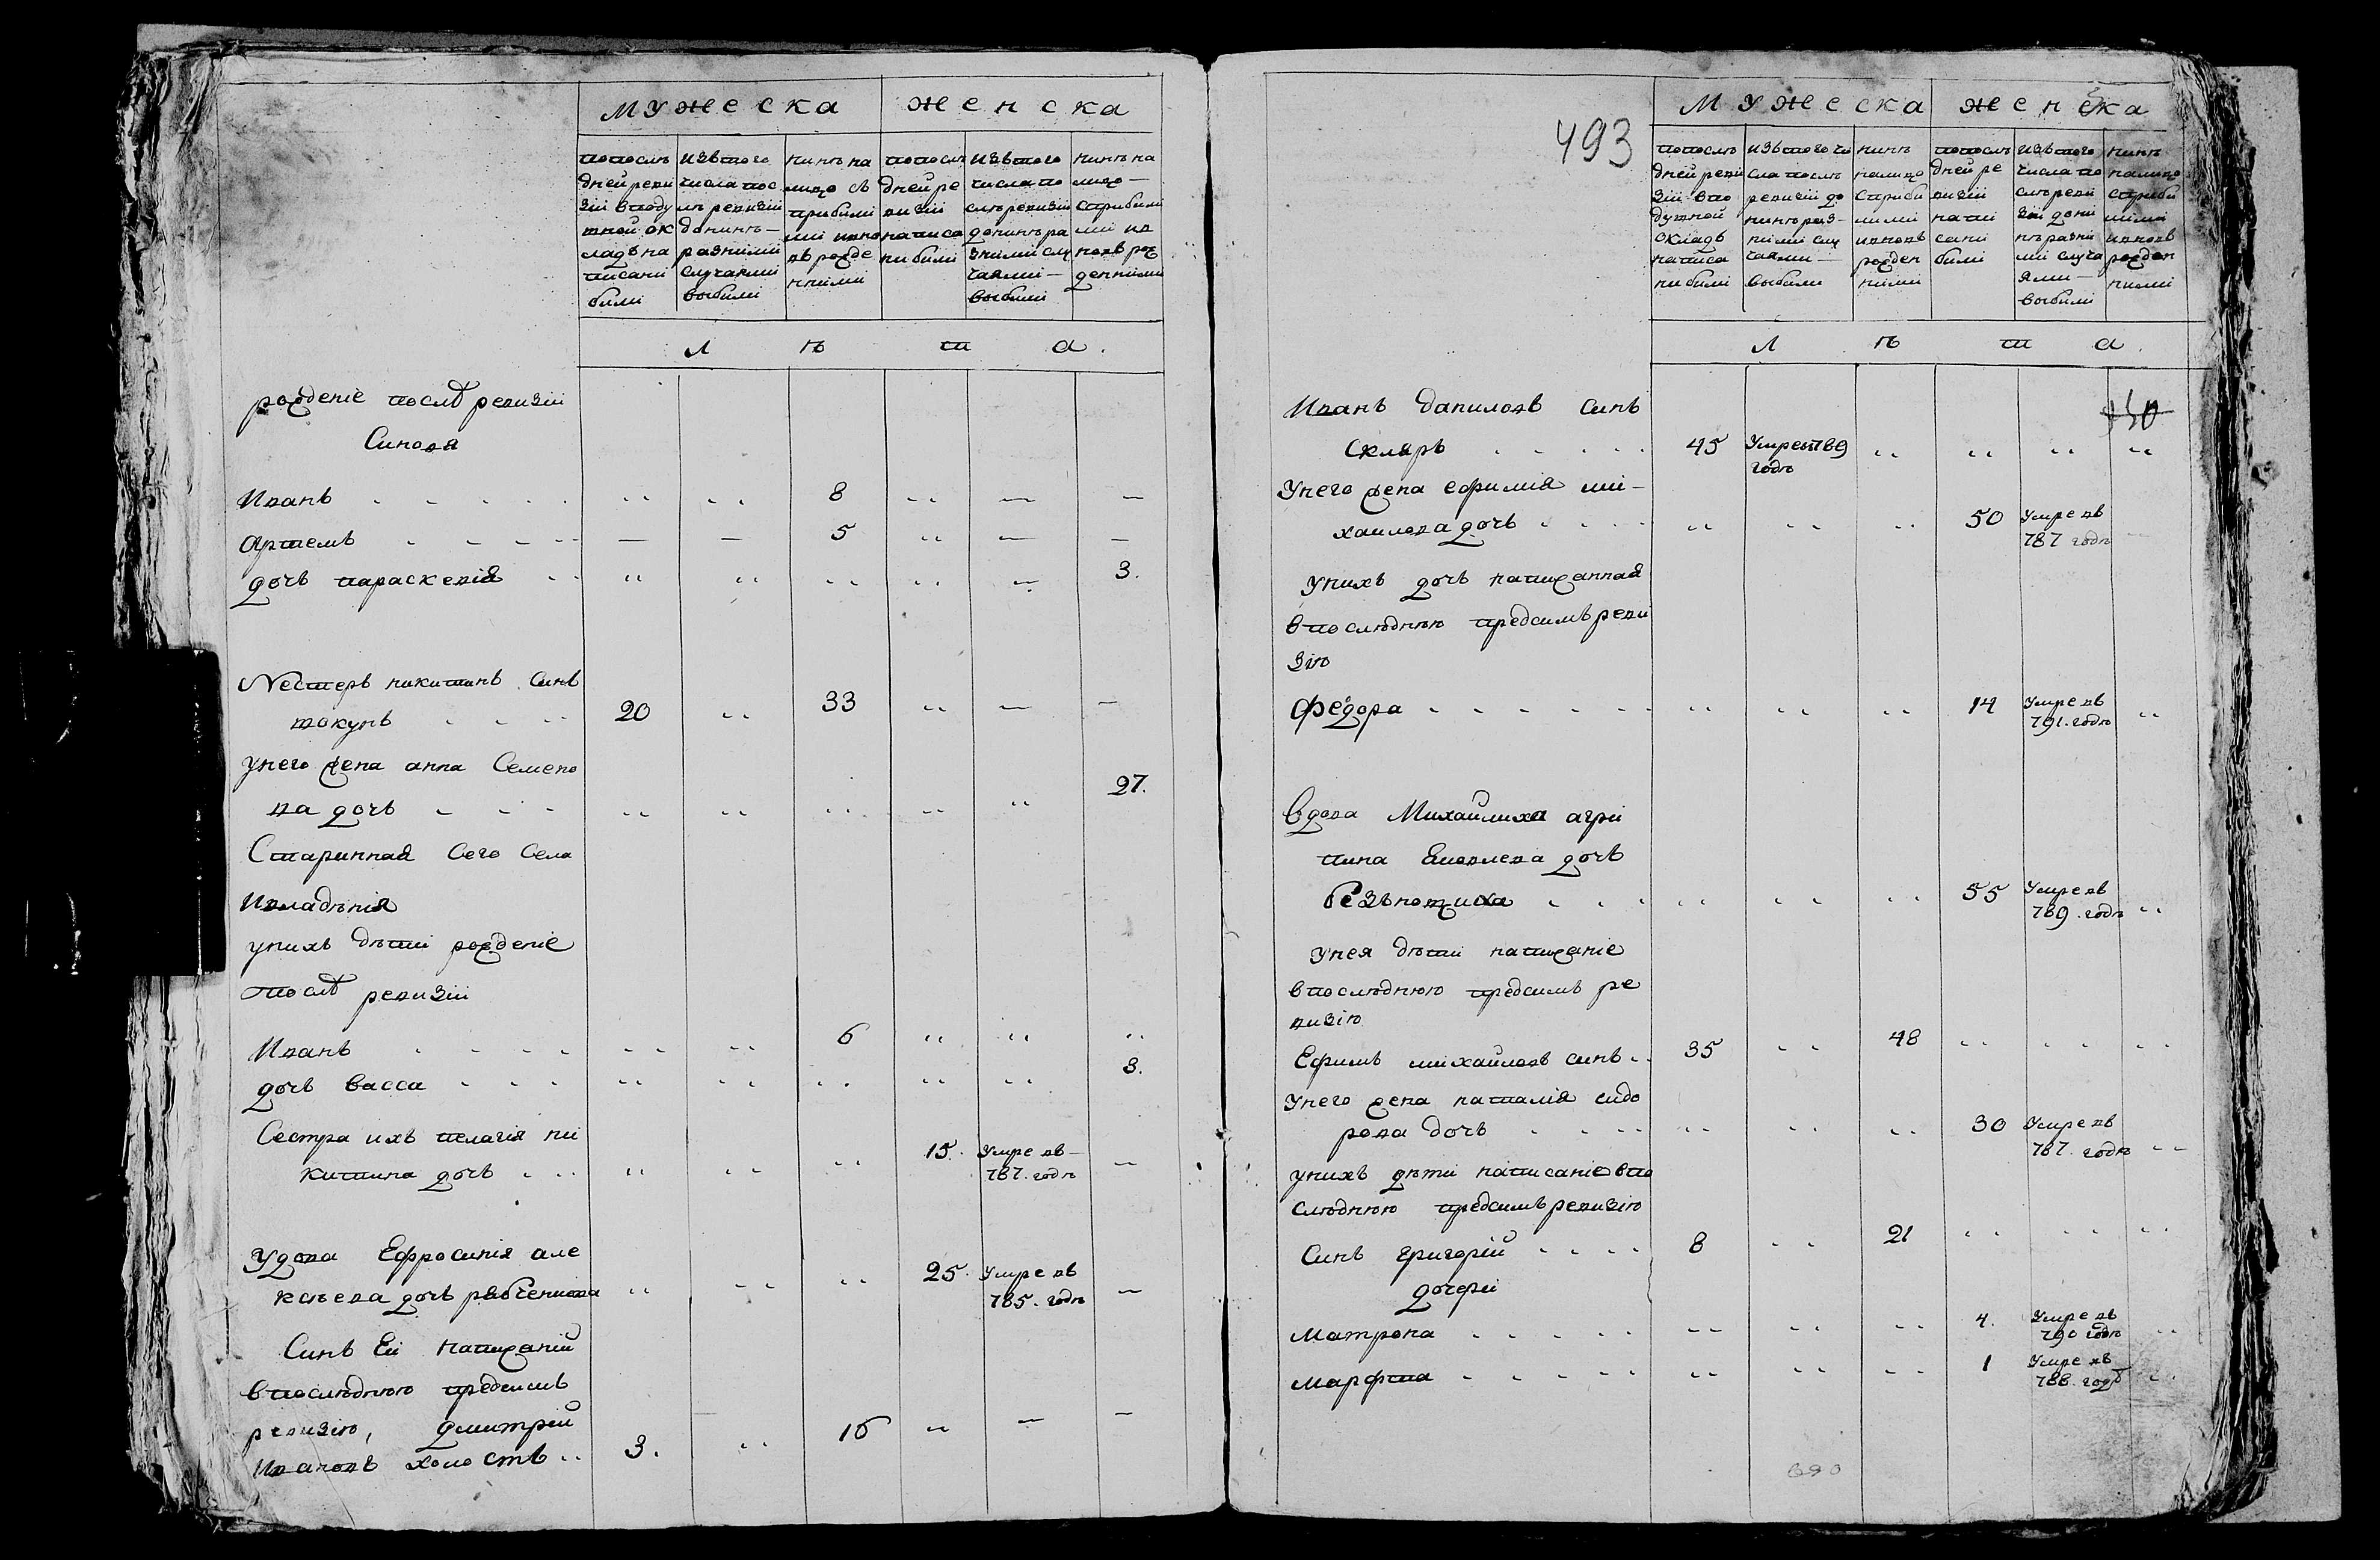 мужеска женска
попослѣ
дней реви
зіи вподу
шной ок
ладъ на
писани
били
изътого
числа пос
лѣ ревизіи
донинѣ—
разними
случаями
выбили
нинѣ на
лицо съ
прибили
ми ивно
въ рожде
нними
попослѣ
дней ре
визіи
написа
ни били
изътого
числа по
слѣ ревизіи
донинѣ ра
зними слу
чаями—
выбили
нинѣ на
лицо—
сприбили
ми ив
новъ рож
денними
л ѣ т а.
рожденіе послѣ ревизіи
Синовя
Иванъ 8
Артемъ 5
дочь параскевія 3.
Nестеръ никитинъ синъ
токунъ 20 33
унего жена анна Семено
ва дочь 27.
Старинная Сего Села
Ивладѣнія
унихъ дѣти рожденіе
послѣ ревизіи
Иванъ 6
дочь васса 3.
Сестра ихъ пелагія ни
китина дочь 15. Умре въ—
787. годѣ
Удова Ефросинія але
ксѣева дочь 25. Умре въ
785. годѣ
Синъ Еи написаній
впослѣднюю предсимъ
ревизію, дмитрій
Ивановъ холостъ 3. 16
493
Мужеска женска
попослѣ
дней реви
зіи впо
душной
окладъ
написа
ни били
изътого чи
сла послѣ
ревизіи до
нинѣ раз-
ними слу
чаями—
выбили
нинѣ
налицо
сприби
лими
ивновъ
рожден
ними
попослѣ
дней ре
визіи
напи
сани
били
изътого
числа по
слѣ реви
зіи дони
нѣ разни
ми случа
ями—
выбили
нинѣ
налицо
сприби
лими
ивновъ
рожден
ними
л ѣ т а.
Иванъ даниловъ синъ
Скляръ 45 Умре въ 789
годѣ
Унего жена ефимія ми-
хаилова дочь 50 Умре въ
787 годѣ
Унихъ дочь написанная
впослѣднюю предсимъ реви
зію
федора 14 Умре въ
791. годѣ
Вдова Михайлиха агри
пина Яковлева дочь
55 Умре въ
789. годѣ
Унея дѣти написаніе
впослѣднюю предсимъ ре
визію
Ефимъ михайловъ синъ 35 48
Унего жена наталія сидо
рова дочь 30 Умре въ
787. годѣ
унихъ дѣти написаніе впо
слѣднюю предсимъ ревизію
Синъ григорій 8 21
дочери
Матрона 4. Умре въ
790 годѣ
Марфа 1 Умре въ
788. годѣ
690